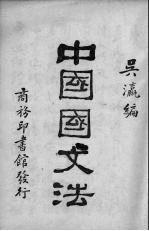 吳瀛編
中國國文法
商務印書館發行